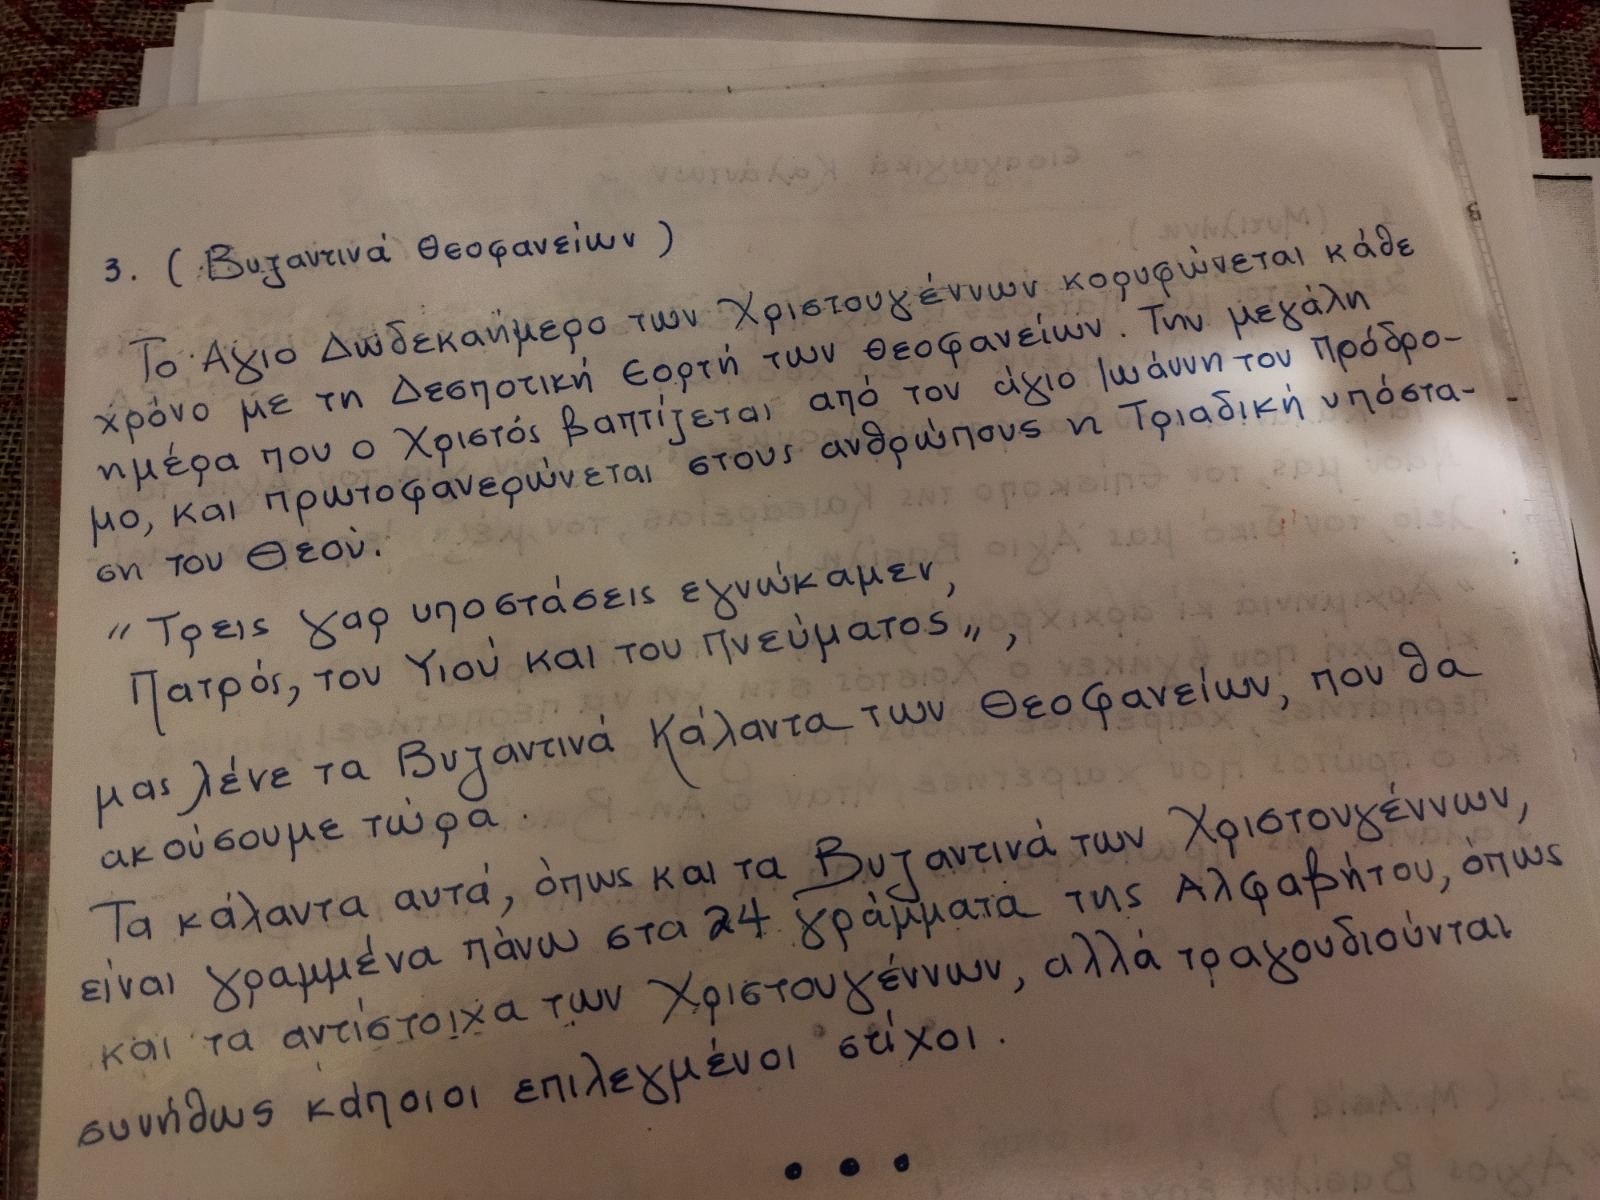 3. ( Βυζαντινά Θεοφανείων )
Το Άγιο Δωδεκαήμερο των Χριστουγέννων κορυφώνεται κάθε
χρόνο με τη Δεσποτική Εορτή των Θεοφανείων. Την μεγάλη
ημέρα που ο Χριστός βαπτίζεται από τον άγιο Ιωάννη τον Πρόδρο-
μο, και πρωτοφανερώνεται στους ανθρώπους η Τριαδική υπόστα-
ση του Θεού.
" Τρεις γαρ υποστάσεις εγνώκαμεν,
Πατρός, του Υιού και του Πνεύματος „ ,
μας λένε τα Βυζαντινά Κάλαντα των Θεοφανείων, που θα
ακούσουμε τώρα.
Τα κάλαντα αυτά, όπως και τα Βυζαντινά των Χριστουγέννων,
είναι γραμμένα πάνω στα 24 γράμματα της Αλφαβήτου, όπως
και τα αντίστοιχα των Χριστουγέννων, αλλά τραγουδιούνται
συνήθως κάποιοι επιλεγμένοι στίχοι.
• • •